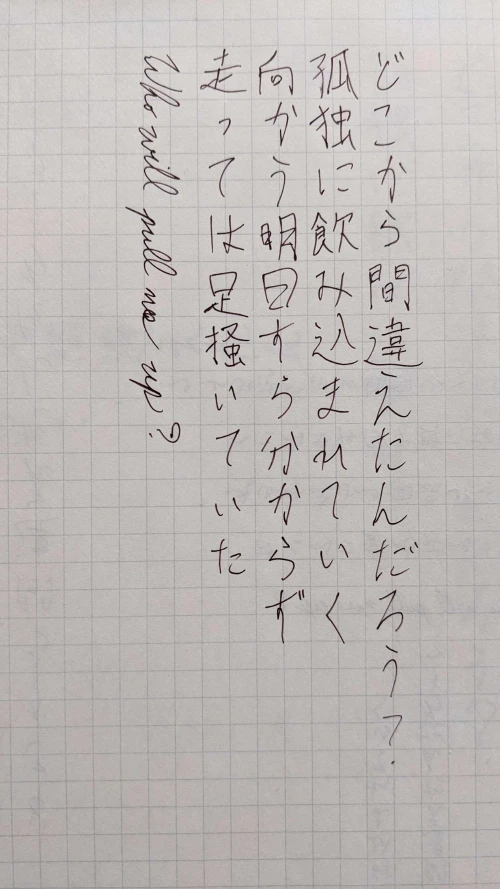 どこから間違えたんだろう？
孤独に飲み込まれていく
向かう明日すら分からず
走っては足掻いていた
Who will pull me up?